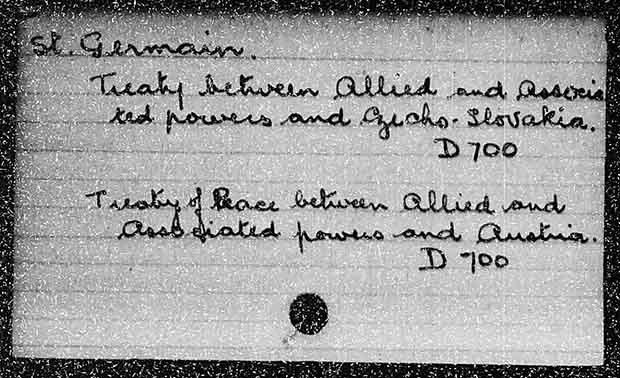 St. Germain.
Treaty between Allied and Associa
ted powers and Czecho-Slovakia.
D 700
Treaty of Peace between Allied and
Associated powers and Austria.
D 700